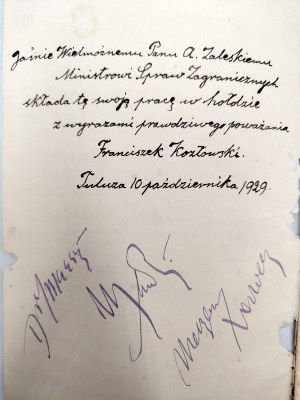 Jaśnie Wielmożnemu Panu A. Zaleskiemu
Ministrowi Spraw Zagranicznych
składa tę swoją pracę w hołdzie
z wyrazami prawdziwego poważania
Franciszek Kozłowski.
Tuluza 10 października 1929.